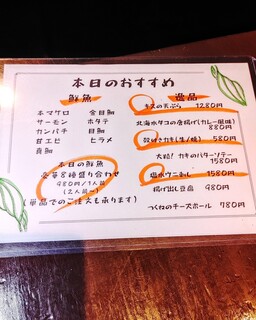 本日のおすすめ
鮮魚
本マグロ 金目鯛
サーモン ホタテ
カンパチ 目鯛
甘エビ ヒラメ
真鯛
本日の鮮魚
豪華8種盛り合わせ
980円/1人前
(2人前〜)
(単品でのご注文も承ります)
逸品
キスの天ぷら 1280円
北海水タコの唐揚げ(カレー風味)
880円
殻付きカキ(生/焼) 580円
大粒!カキのバターソテー
1580円
塩水ウニ 1580円
揚げ出し豆腐 980円
つくねのチーズボール 780円